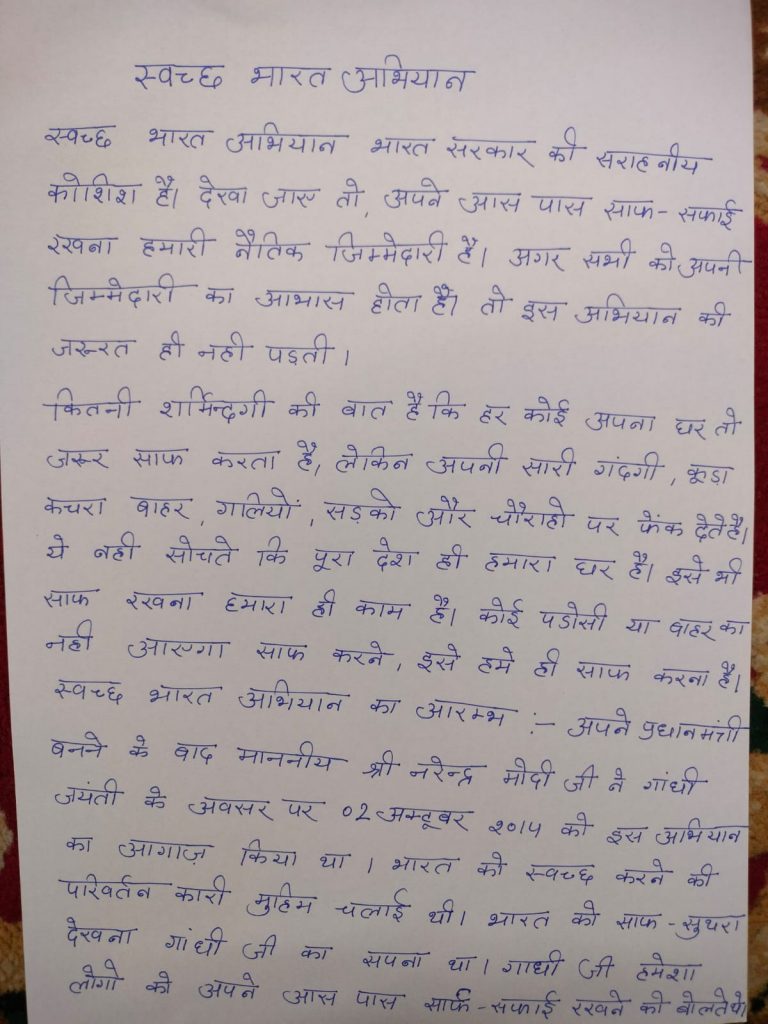 स्वच्छ भारत अभियान
स्वच्छ भारत अभियान भारत सरकार की सराहनीय
कोशिश है। देखा जाए तो, अपने आस पास साफ-सफाई
रखना हमारी नैतिक जिम्मेदारी है। अगर सभी को अपनी
जिम्मेदारी का आभास होता है। तो इस अभियान की
जरूरत ही नही पड़ती।
कितनी शर्मिन्दगी की बात है कि हर कोई अपना घर तो
जरूर साफ करता है, लेकिन अपनी सारी गंदगी, कूड़ा
कचरा बाहर, गलियों, सड़को और चौराहो पर फेंक देते है।
ये नही सोचते कि पूरा देश ही हमारा घर है। इसे भी
साफ रखना हमारा ही काम है। कोई पडोसी या बाहर का
नही आएगा साफ करने, इसे हमे ही साफ करना है।
स्वच्छ भारत अभियान का आरम्भ :- अपने प्रधानमंत्री
बनने के बाद माननीय श्री नरेन्द्र मोदी जी ने गांधी
जयंती के अवसर पर ०2 अक्टूबर २०१५ को इस अभियान
का आगाज़ किया था। भारत को स्वच्छ करने की
परिवर्तन कारी मुहिम चलाई थी। भारत को साफ-सुथरा
देखना गांधी जी का सपना था। गाधी जी हमेशा
लोगो को अपने आस पास साफ-सफाई रखने को बोलते थे।